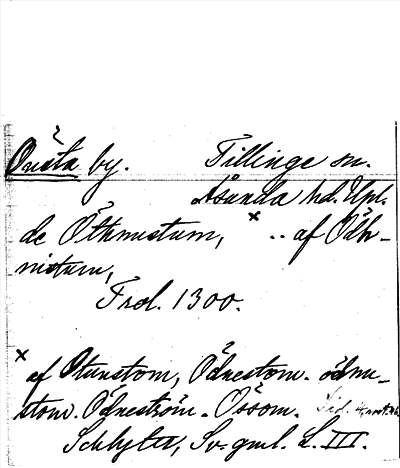 Önsta by. Tillinge sn.
Åsunda hd. Upl.
de Öthnustum, × .. af Ödh-
nistum,
Frol. 1300.
× af Otunstom, Ödnestom. ödnu-
stom. Ödneström. Ösom.
Schlyter, Sv. gml. L. III.